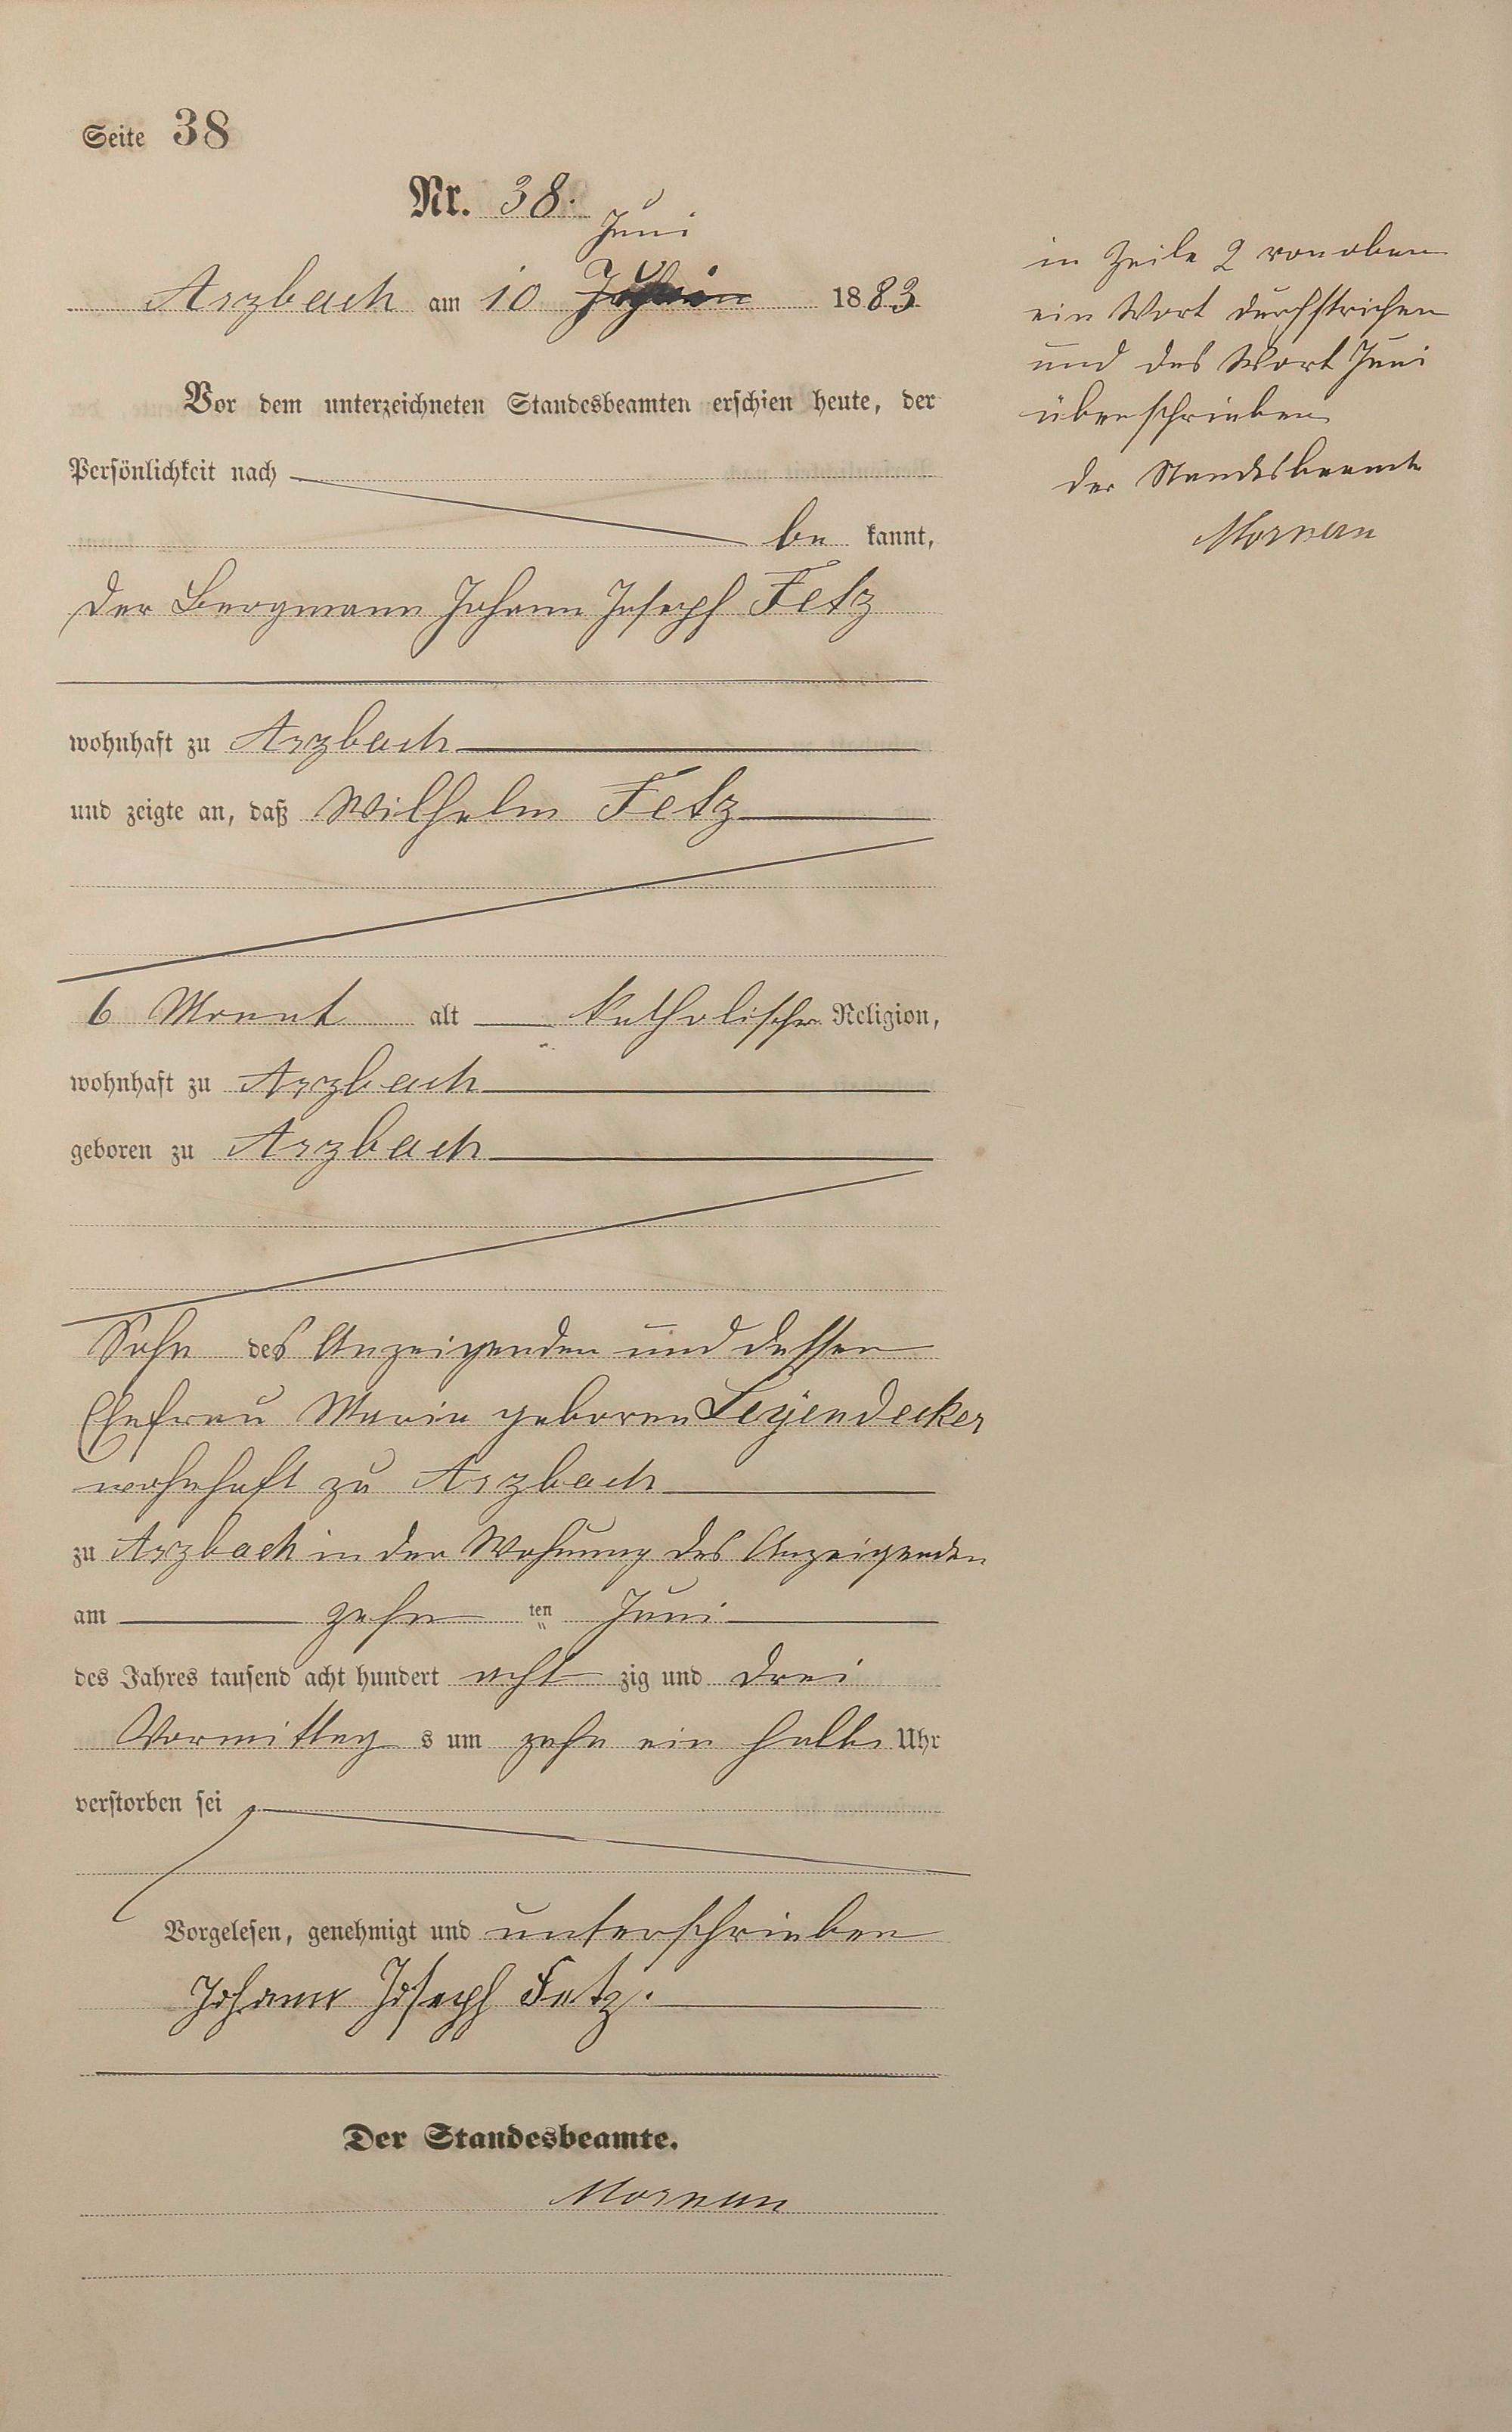 Seite 38
Nr. 38.
Juni
Arzbach am 10 1883
Vor dem unterzeichneten Standesbeamten erschien heute, der
Persönlichkeit nach
be kannt,
der Bergmann Johann Joseph Fetz
wohnhaft zu Arzbach
und zeigte an, daß Wilhelm Fetz
6 Monat alt katholischer Religion,
wohnhaft zu Arzbach
geboren zu Arzbach
Sohn des Anzeigenden und dessen
Ehefrau Maria geboren Leyendecker
wohnhaft zu Arzbach
zu Arzbach in der Wohnung des Anzeigenden
am zehn ten Juni
des Jahres tausend acht hundert acht zig und drei
Vormittag s um zehn ein halb Uhr
verstorben sei
Vorgelesen, genehmigt und unterschrieben
Johann Joseph Fetz.
Der Standesbeamte.
in Zeile 2 von oben
ein Wort durchstrichen
und das Wort Juni
überschrieben
der Standesbeamte